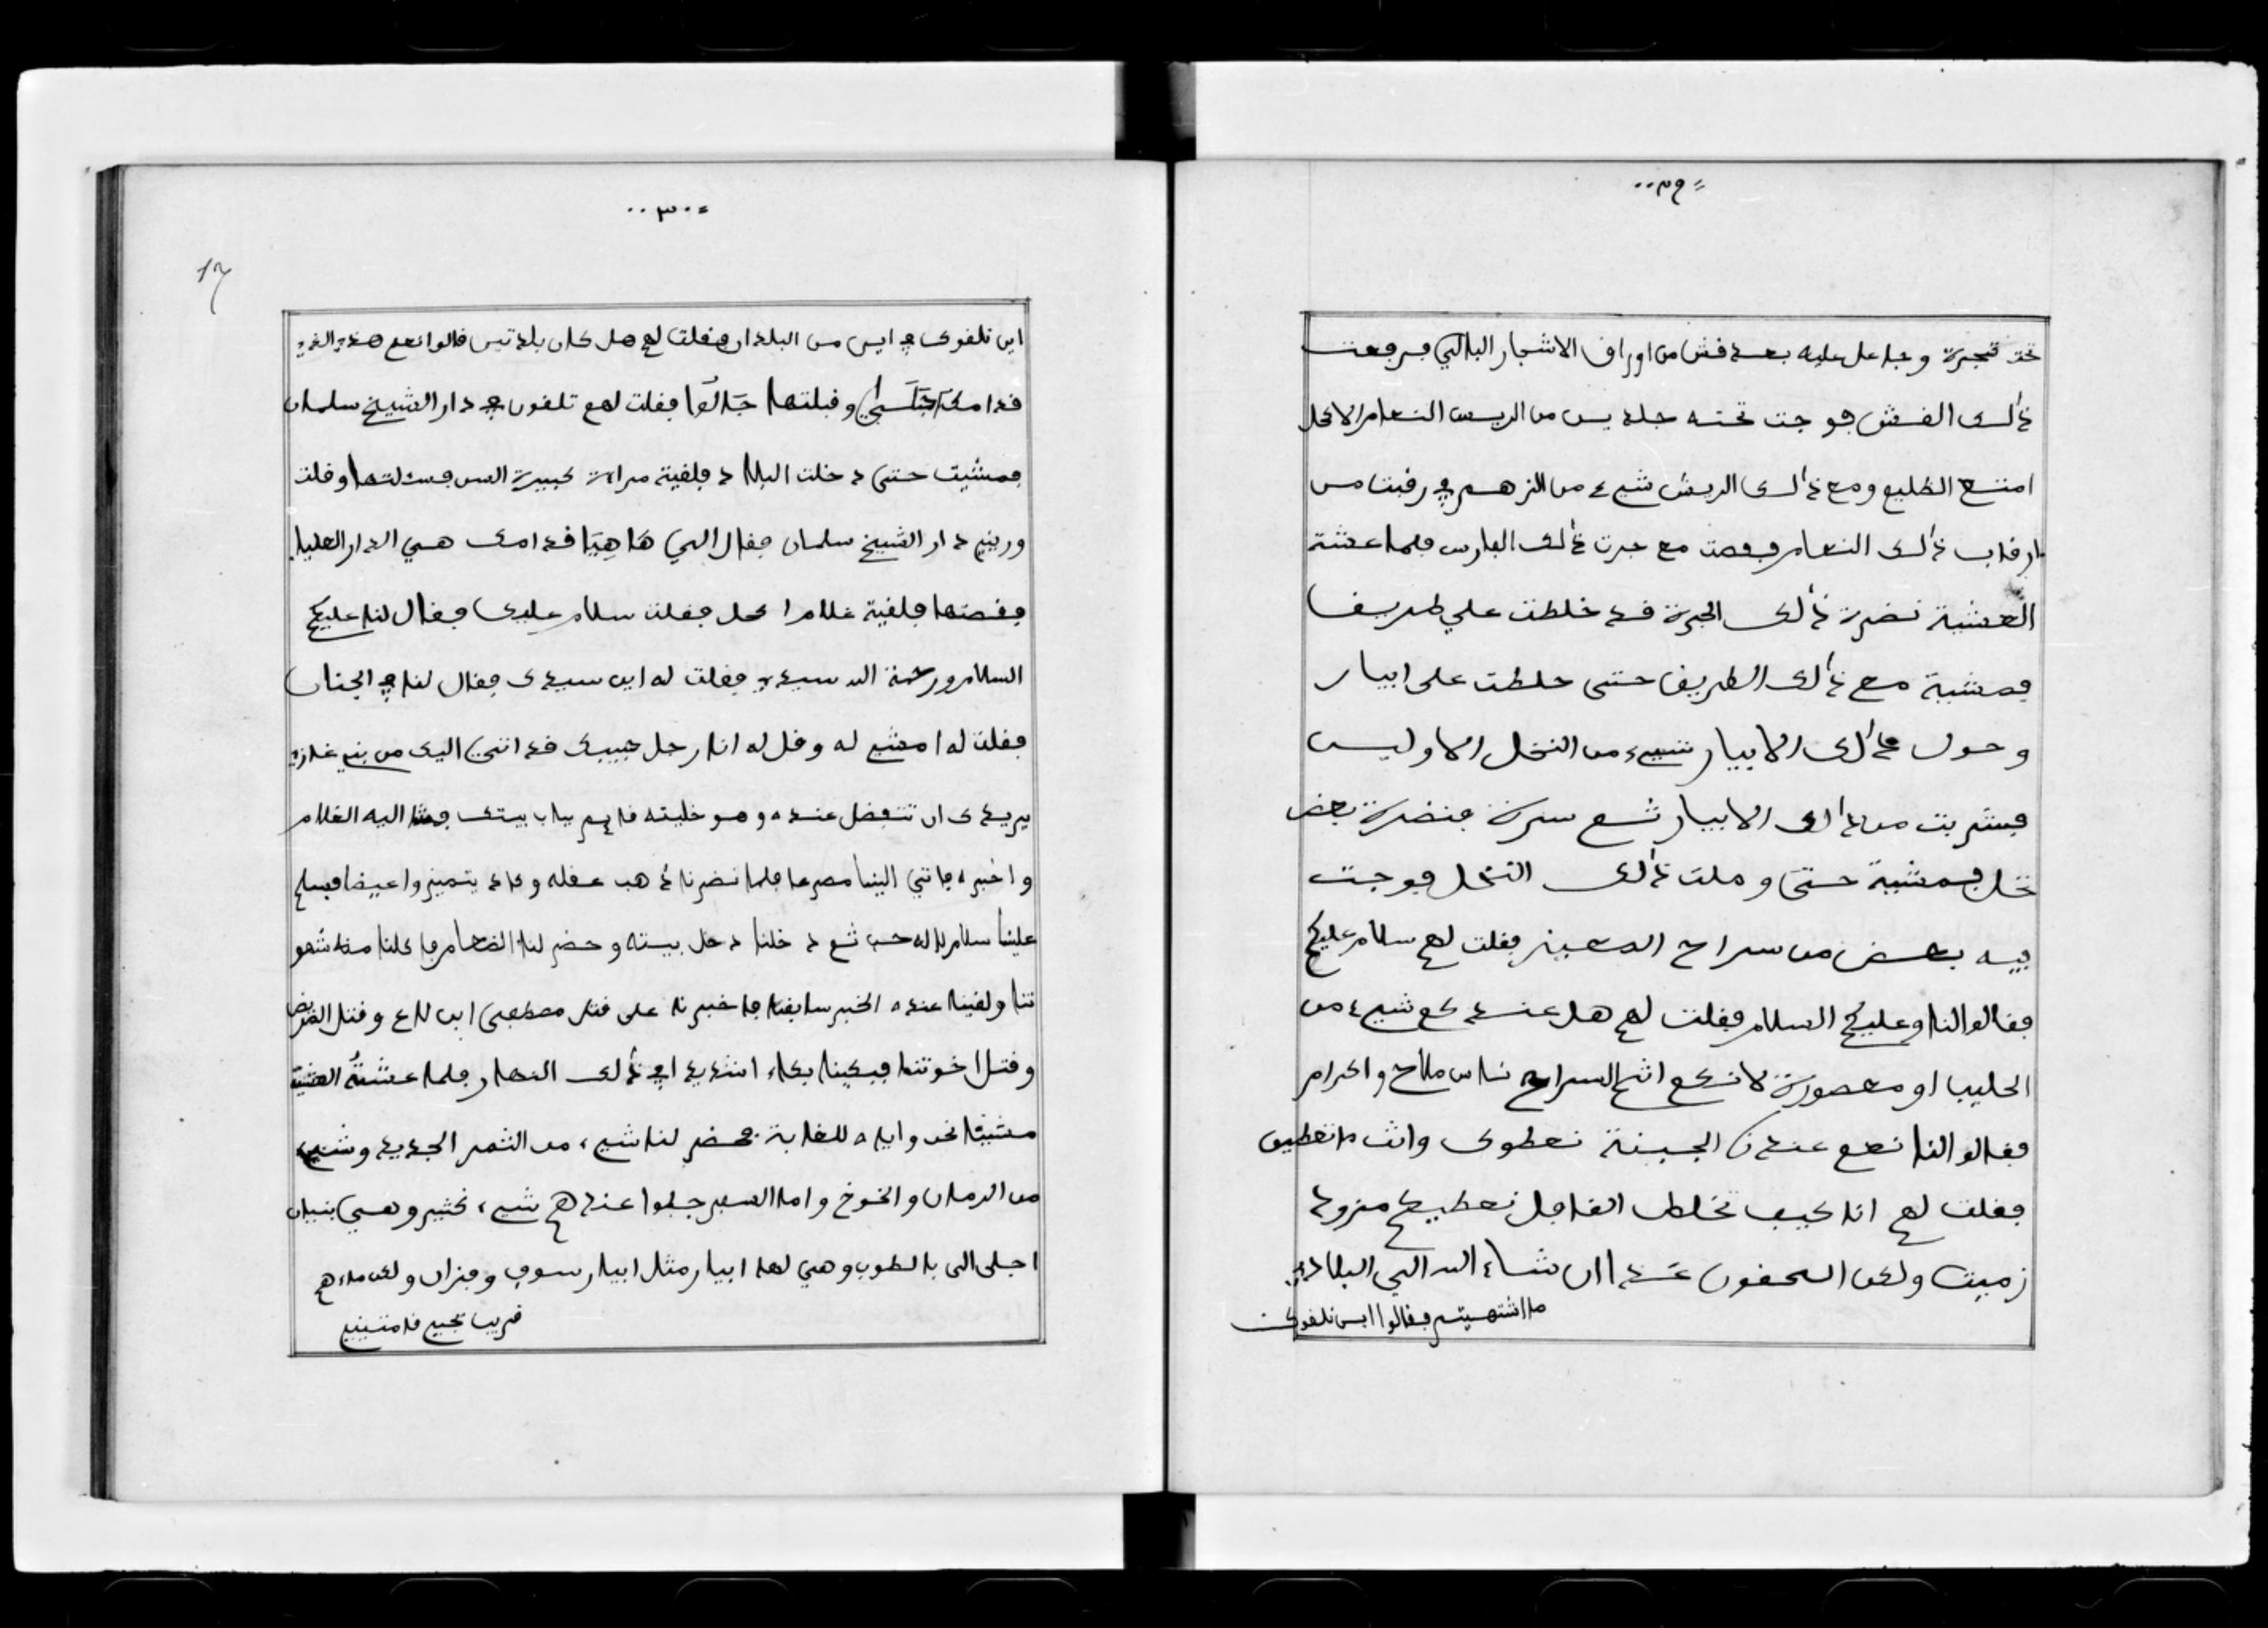 =٢٩٠٠
تحت شجرة وجاعل عليه بعد فش من اوراق الاشجار البالي فرفعت
ذألك الفش فوجت تحته جلديـن من الريـش النعام الاكحل
امتع الظليع ومع ذألك الريش شيء من الزهم في رقبت من
ارقاب ذألك النعام فقصت مع جرت ذألك الفارس فلما عشة
العشية نضرة ذألك الجرة قد خلطت علي طريق
فمشية مع ذألك الطريق حتى خلطت على ابيار
وحول ذألك الابيار شيء من النخل الاوليـن
فشربت من ذألك الابيار ثم سرة فنضرة بعض
نخل فمشية حتى وصلت ذألك النخل فوجت
فيه بعض من سراح المعيز فقلت لهم سلام عليكم
فقالوا لنا وعليكم السلام فقلت لهم هل عندكم شيء من
الحليب او معصورة لانكم انتم السراح ناس ملاح واكرام
فقالوا لنا نعم عندنا الجبنة نعطوك وانت ما تعطين
فقلت لهم انا كيف نخلط القافل نعطيكم مزود
زميت ولكن السحفون غدا ان شاء الله الي البلاد
ما اشتهيتم فقالوا اين نلقوك
=٣٠٠٠
17
اين نلقوك في ايس من البلدان فقلت لهم هل كان بلد تيس قالوا نعم هذه الذي
قدامك وقبلتها جَالُوا فقلت لهم تلقون في دار الشيخ سلمان
فمشيت حتى دخلت البلاد فلقية مراة كبيرة السن فسئلتها وقلت
وريني دار الشيخ سلمان فقال الي هَاهِيَا قدامك هي الدار العليا
فقصتها فلقية غلاما كحل فقلت سلام عليك فقال لنا عليكم
السلام ورحمة الله سيدي فقلت له اين سيدك فقال لنا في الجنان
فقلت له امشي له وقل له انا رجل حبيبك قد اتي اليك من بني غازي
يريدك ان تتفضل عنده وهو خليته قايم بباب بيتك فمشا اليه الغلام
واخبره فاتي الينا مصرعا فلما نضرنا ذهب عقله وعاد يتميز واعيضا فسلم
علينا سلام لاله حب ثم دخلنا دخل بيته وحضر لنا الضعام فاكلنا
تنا ولقينا عنده الخبر سابقنا فاخبرنا على قتل مصطفى ابن لاع وقتل القريض
وقتل اخوتنا فبكينا بكاء اشديدا في ذألك النهار فلما عشتُ العشية
مشينا نحن واياه للغابة فحضر لنا شيء من الثمر الجديد وشيء
من الرمان والخوخ واما السفرجلوا عندهم شيء كثير وهي بنيان
اجلى الى بالطوب وهي لها ابيار مثل ابيار سوف وفزان ولكن ماءهم
قريب نجيع قامتين